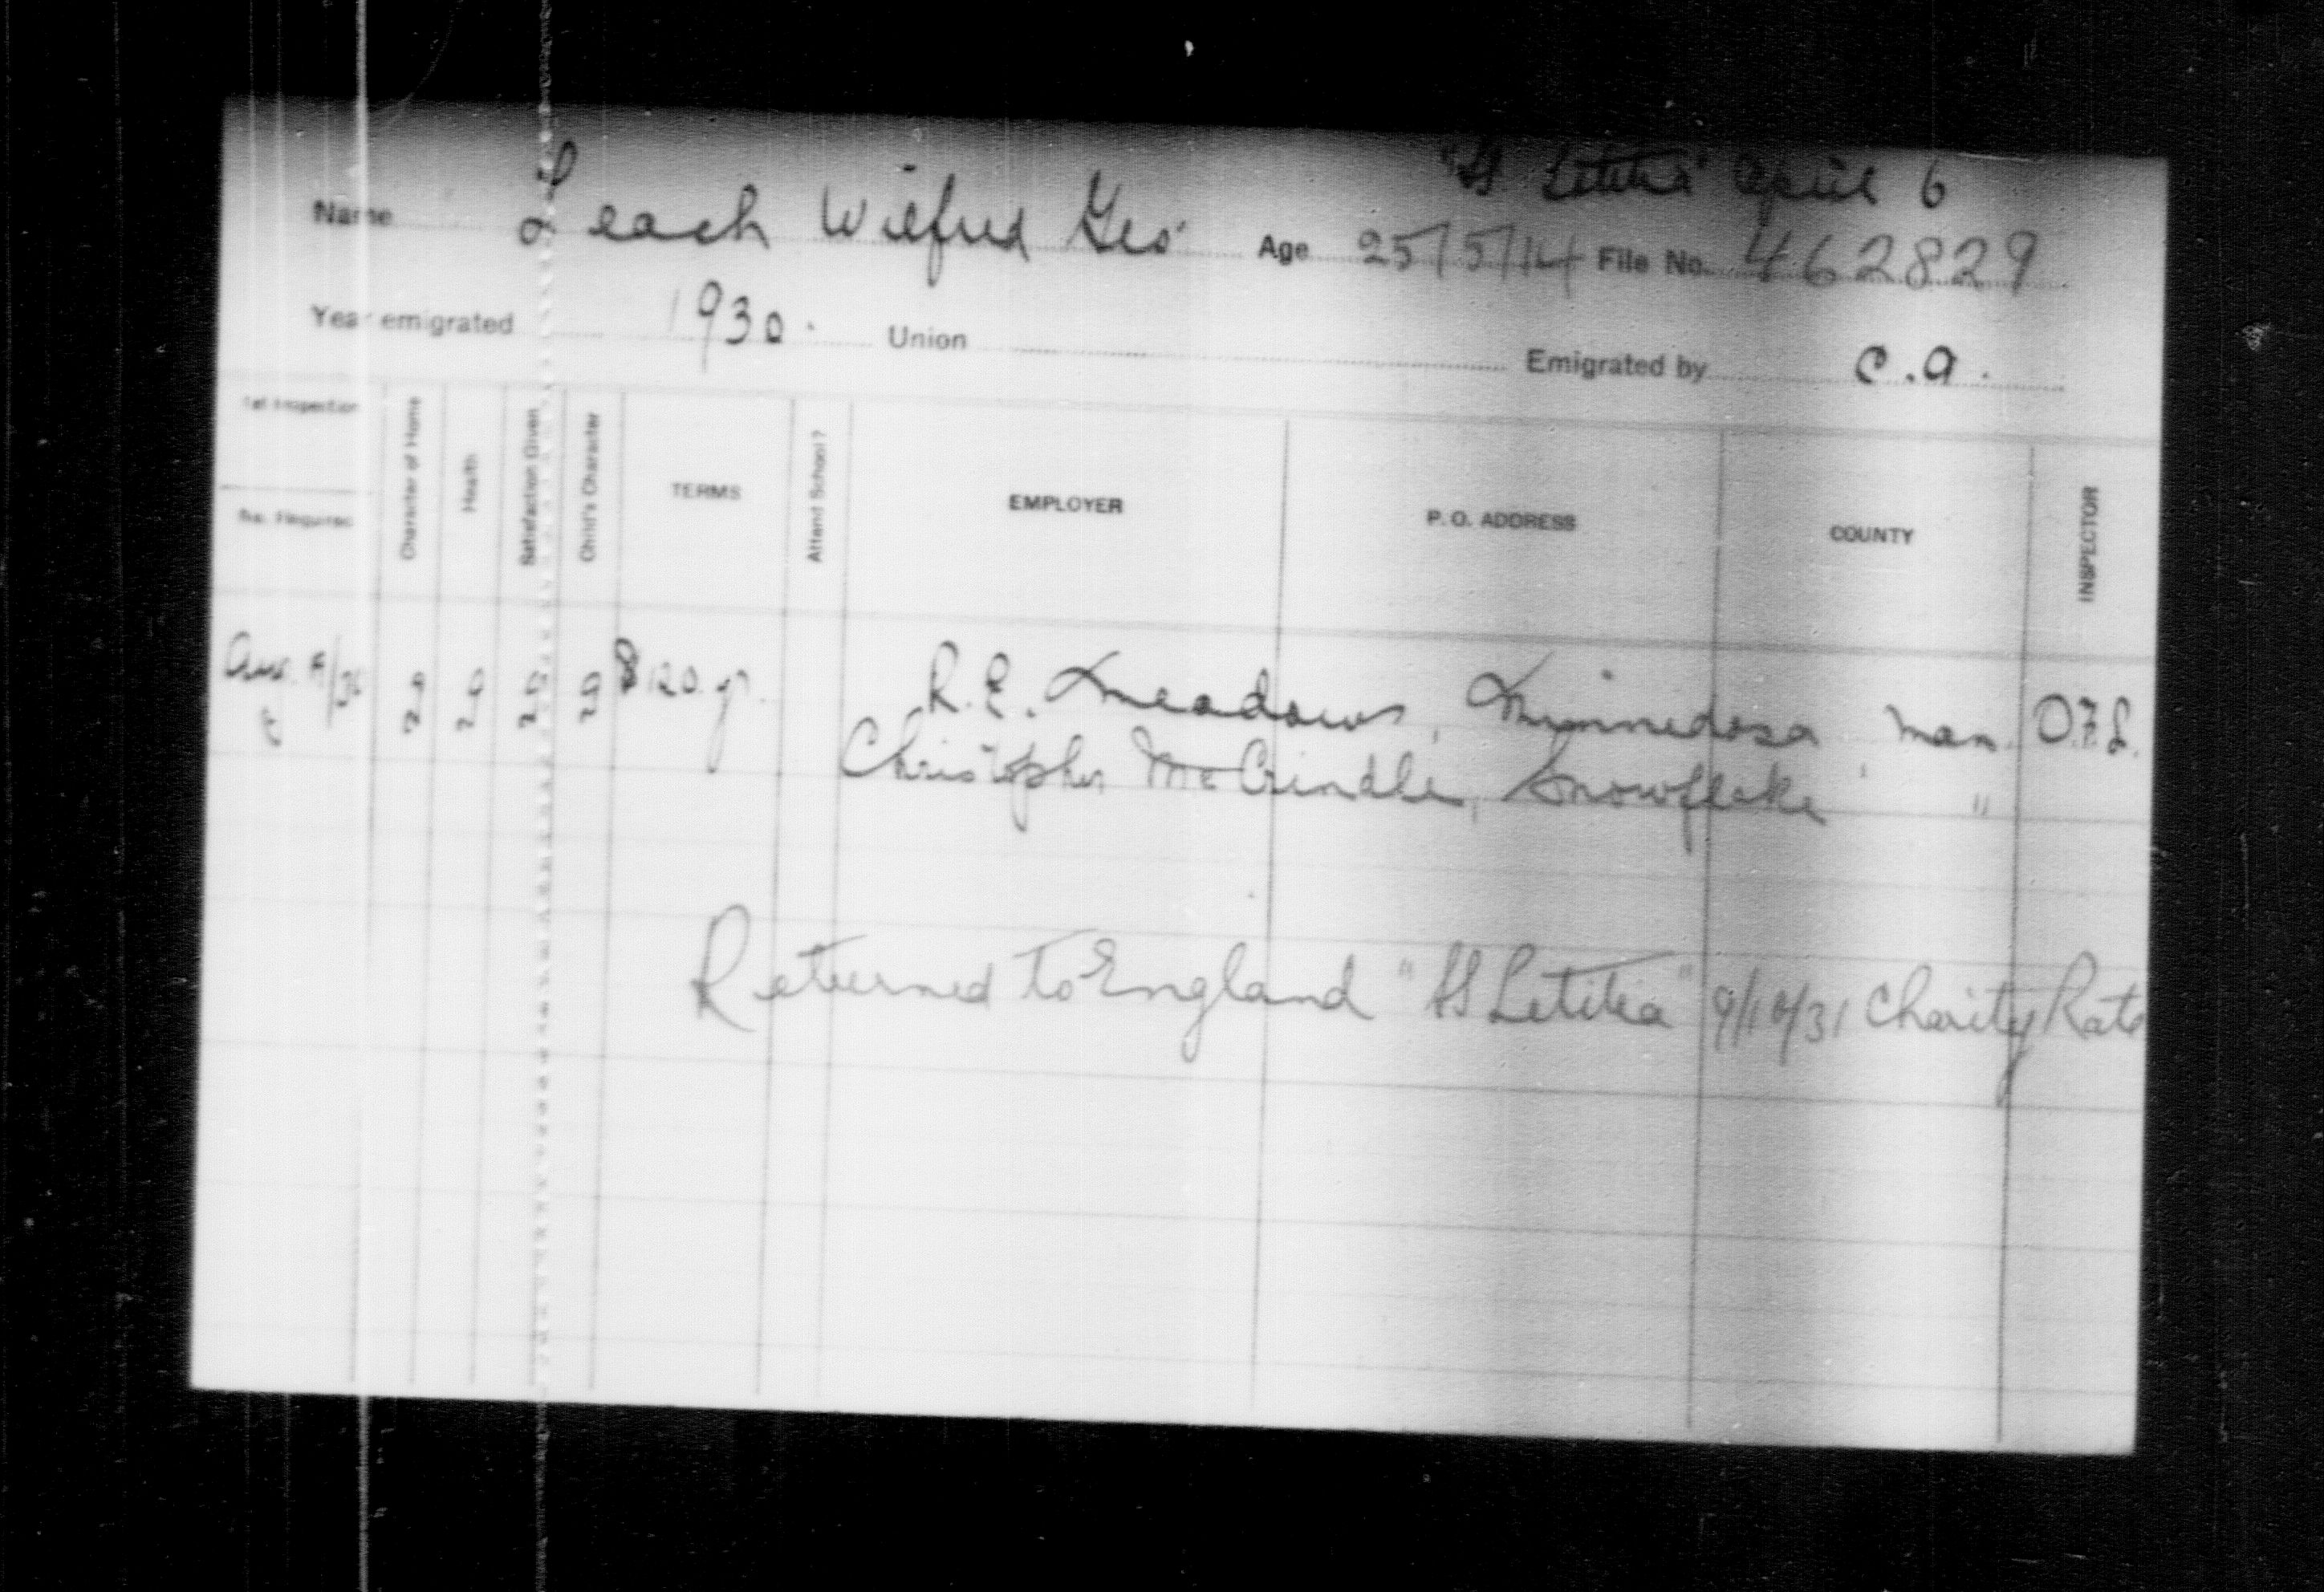 "SS Letitia" April 6
Name Leach Wilfred Geo Age 25/5/14 File No. 462829
Year emigrated 1930. Union Emigrated by C.A.
1st Inspection
No. Required
Character of Home
Health
Satisfaction Given
Child's Character
TERMS
Attend School?
EMPLOYER
P. O. ADDRESS
COUNTY
INSPECTOR
$120 yr. R.E. Meadows, Minnedosa Man.
Christopher McCrindle, Snowflake "
Returned to England "SS Letitia" 9/10/31 Charity Rate